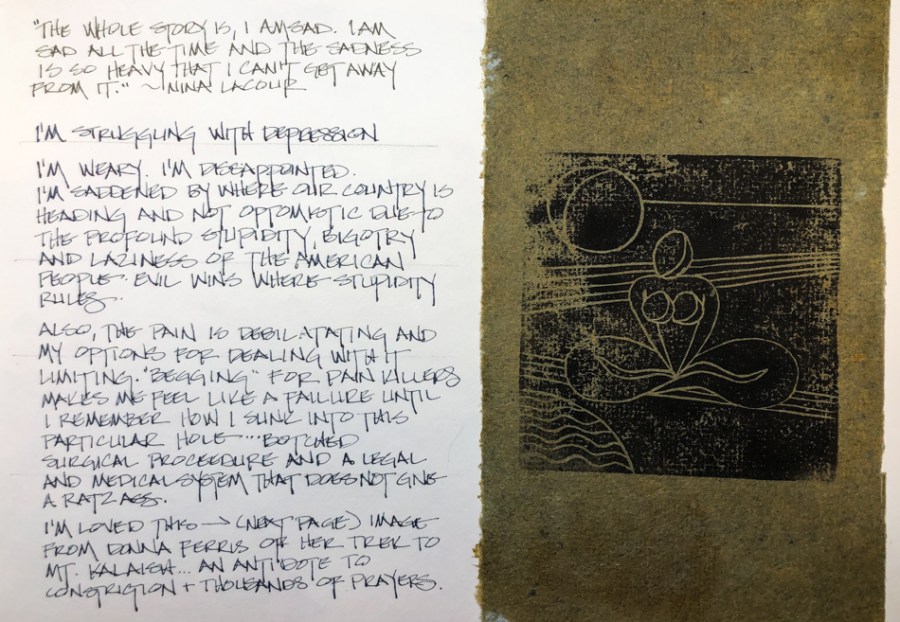 "THE WHOLE STORY IS, I AM SAD. I AM
SAD ALL THE TIME AND THE SADNESS
IS SO HEAVY THAT I CAN'T GET AWAY
FROM IT." ~ NINA LACOUR
I'M STRUGGLING WITH DEPRESSION
I'M WEARY. I'M DISSAPPOINTED.
I'M SADDENED BY WHERE OUR COUNTRY IS
HEADING AND NOT OPTOMISTIC DUE TO
THE PROFOUND STUPIDITY, BIGOTRY
AND LAZINESS OF THE AMERICAN
PEOPLE. EVIL WINS WHERE STUPIDITY
RULES..
ALSO, THE PAIN IS DEBILATATING AND
MY OPTIONS FOR DEALING WITH IT
LIMITING. "BEGGING" FOR PAIN KILLERS
MAKES ME FEEL LIKE A FAILURE UNTIL
I REMEMBER HOW I SUNK INTO THIS
PARTICULAR HOLE .... BOTCHED
SURGICAL PROCEEDURE AND A LEGAL
AND MEDICAL SYSTEM THAT DOES NOT GIVE
A RATZ ASS.
I'M LOVED THIS → (NEXT PAGE) IMAGE
FROM DONNA FERRIS OF HER TREK TO
MT. KALAISH... AN ANTIDOTE TO
CONSTRICTION + THOUSANDS OF PRAYERS.